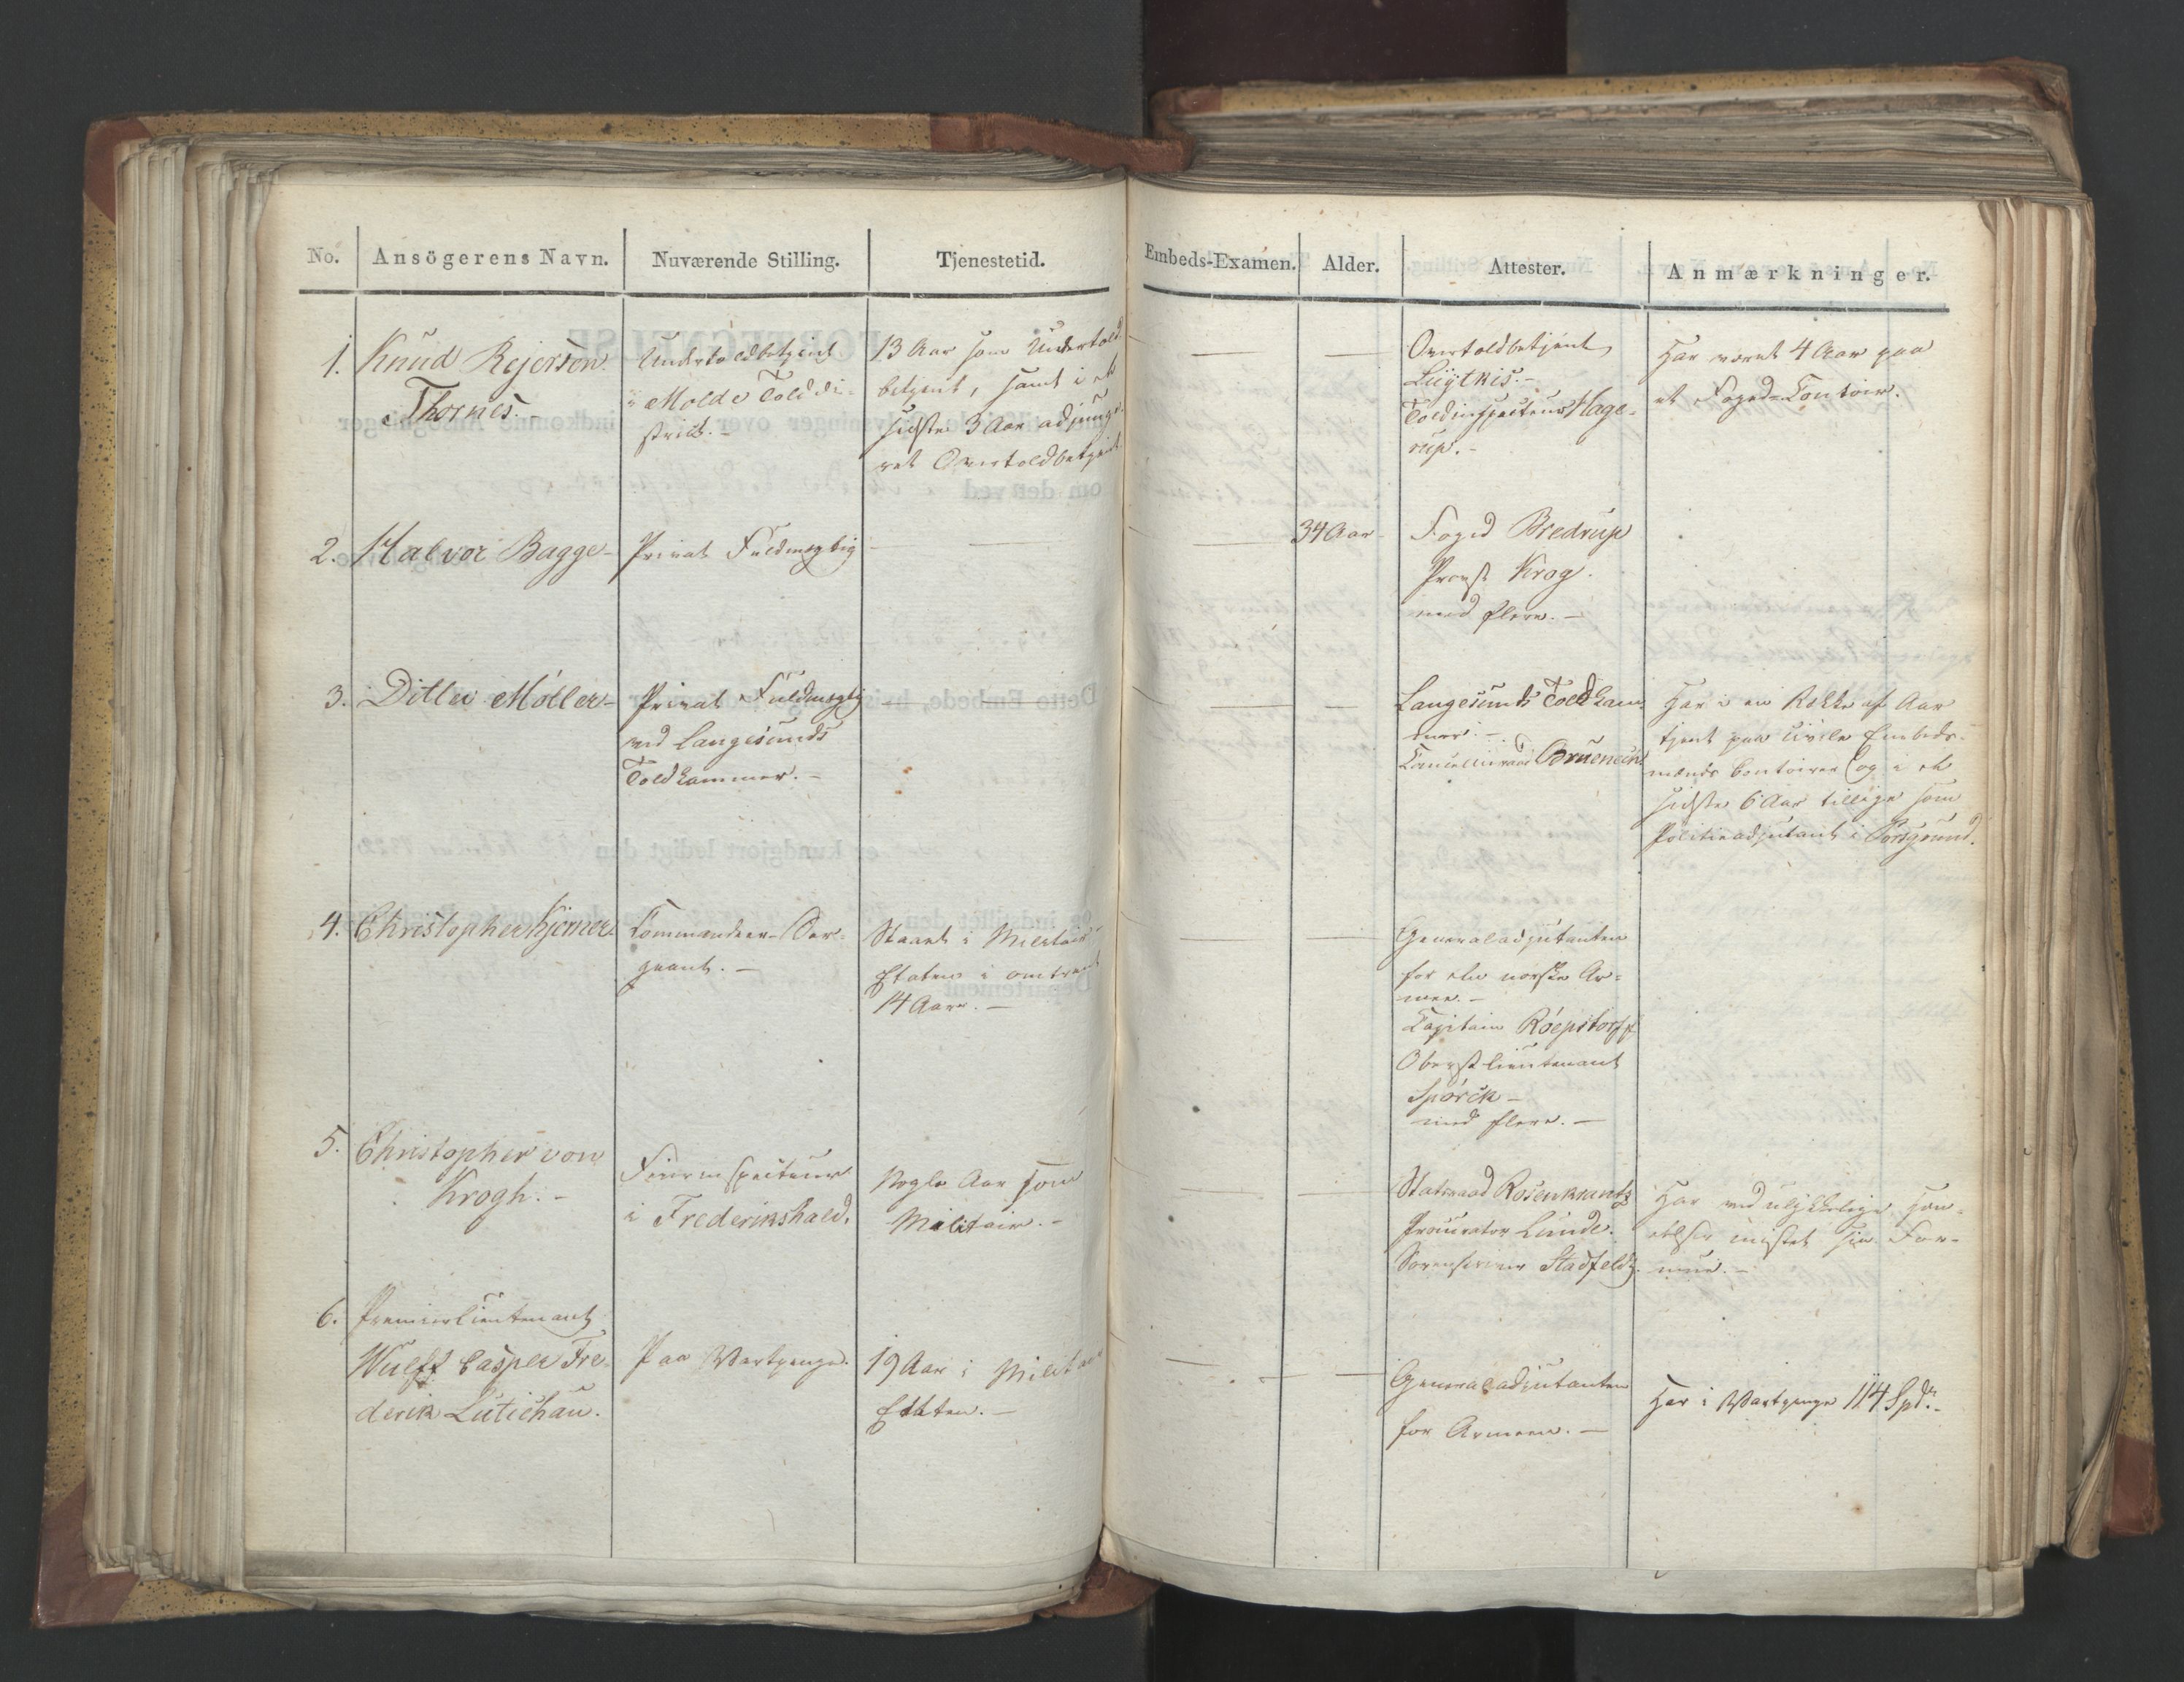 No. Ansögerens Navn. Nuværende Stilling. Tjenestetid. Embeds-Examen. Alder. Attester. Anmærkninger.
1. Knud Rejersen
Thornes.-
Undertoldbetjent
i Molde Tolddi-
strict.-
13 Aar som Undertold
betjent, samt i de
sidste 3 Aar adjunge-
ret Overtoldbetjent
—
—
Overtoldbetjent
Lüytkis.-
Toldinspecteur Hage-
rup.-
Har været 4 Aar paa
et Foged-Contoir.
2. Halvor Bagge-
Privat Fuldmægtig
—
—
34 Aar
Foged Bredrup
Provst Krog.
med flere.-
3. Ditlev Möller-
Privat Fuldmægtig
ved Langesunds
Toldkammer.-
—
—
—
Langesunds Toldkam-
mer.-
Cancelliraad Bruenech
Har i en Række af Aar
tjent paa civile Embeds-
mænds Contoirer og i de
sidste 6 Aar tillige som
Politieadjutant i Porsgrund.
4. Christopher Kjerner.
Commandeer-Ser-
geant.-
Staaet i Militair
Etaten i omtrent
14 Aar.-
—
—
Generaladjutanten
for den norske Ar-
mee.-
Capitain Röepstorff
Oberstlieutenant
Spörck-
med flere.-
5. Christopher von
Krogh.-
i Frederikshald.
Nogle Aar som
Militair.-
—
—
Statsraad Rosenkrantz
Procurator Lunde.
Sorenskriver Stadfeldt.
Har ved ulykkelige Hæn-
delser mistet sin For-
mue.-
6. Premierlieutenant
Wulff Casper Fre-
derik Lüttichau.
Paa Vartpenge.
19 Aar i Militair
Etaten.-
—
—
Generaladjutanten
for Armeen.-
Har i Vartpenge 114 Spd.-